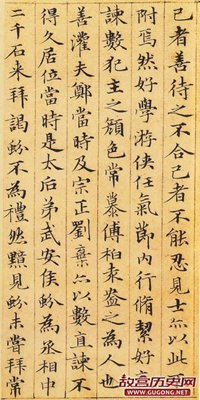 己者善待之不合己者不能忍見士亦以此
附焉然好學游俠任氣節內行脩絜好
諫數犯主之顏色常慕傅柏袁盎之為人也
善灌夫鄭當時及宗正劉棄亦以數直諫不
得久居位當時是太后弟武安侯蚡為丞相中
二千石来拜謁蚡不為禮然黯見蚡未嘗拜常
故宫历史网